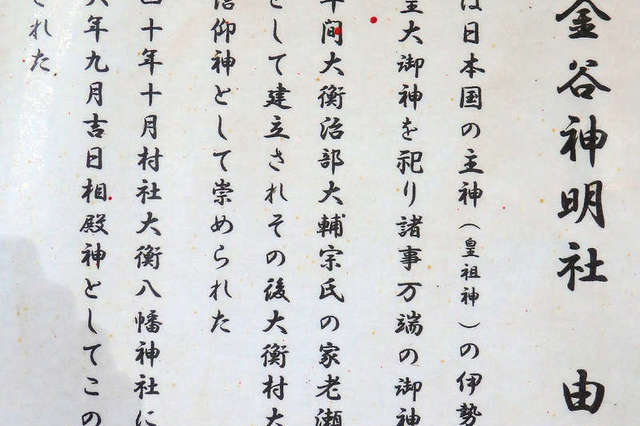 金谷神明社 由
は日本国の主神(皇祖神)の伊勢
大御神を祀り諸事万端の御神
年間大衡治部大輔宗氏の家老瀬
として建立されその後大衡村大
信仰神として崇められた
四十年十月村社大衡八幡神社に
年九月吉日相殿神としてこの
された